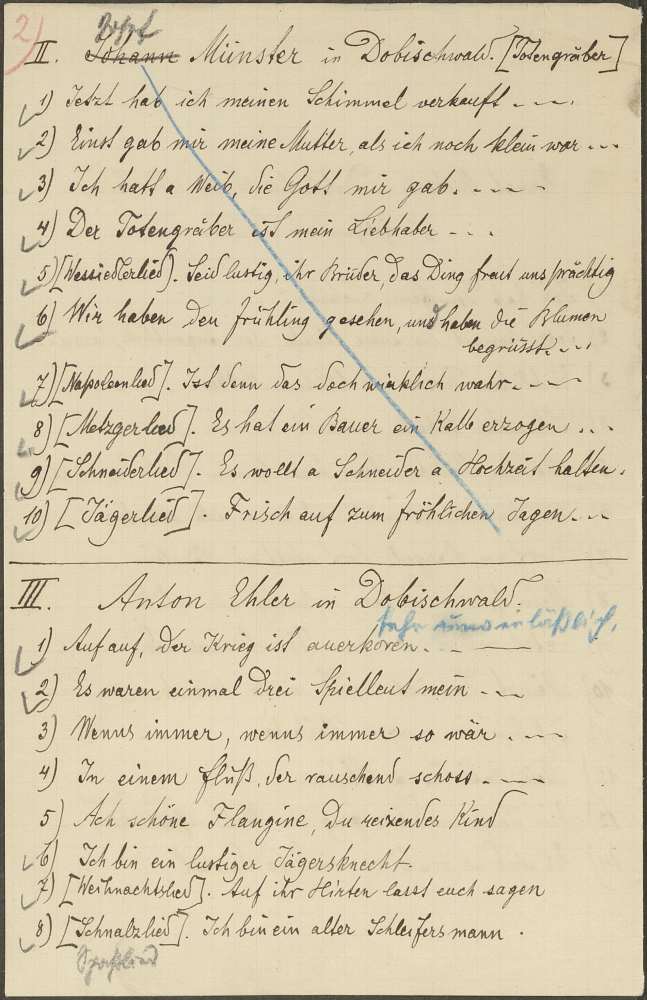 2)
Josef
II. Johann Münster in Dobischwald. [Totengräber]
1) Jetzt hab ich meinen Schimmel verkauft - - -.
2) Einst gab mir meine Mutter, als ich noch klein war - - -
3) Ich hatt a Weib, die Gott mir gab. - - - -
4) Der Totengräber ist mein Liebhaber - - -
5) [Wessiedlerlied]. Seid lustig, ihr Brüder, das Ding freut uns prächtig
6) Wir haben den Frühling gesehen, und haben die Blumen
begrüsst. - - -
7) [Napoleonlied]. Ist denn das doch wirklich wahr. - - -
8) [Metzgerlied]. Es hat ein Bauer ein Kalb erzogen - - -
9) [Schneiderlied]. Es wollt a Schneider a Hochzeit halten.
10) [Jägerlied]. Frisch auf zum fröhlichen Jagen. - -
III. Anton Ehler in Dobischwald.
sehr unverläßlich.
1) Auf auf, der Krieg ist auerkoren. - - -
2) Es waren einmal drei Spielleut mein - - -
3) Wenns immer, wenns immer so wär. - -
4) In einem Fluß, der rauschend schoss - - -
5) Ach schöne Flangine, Du reizendes Kind
6) Ich bin ein lustiger Jägersknecht.
7) [Weihnachtslied]. Auf ihr Hirten lasst euch sagen
8) [Schnalzlied]. Ich bin ein alter Schleifersmann.
Spottlied